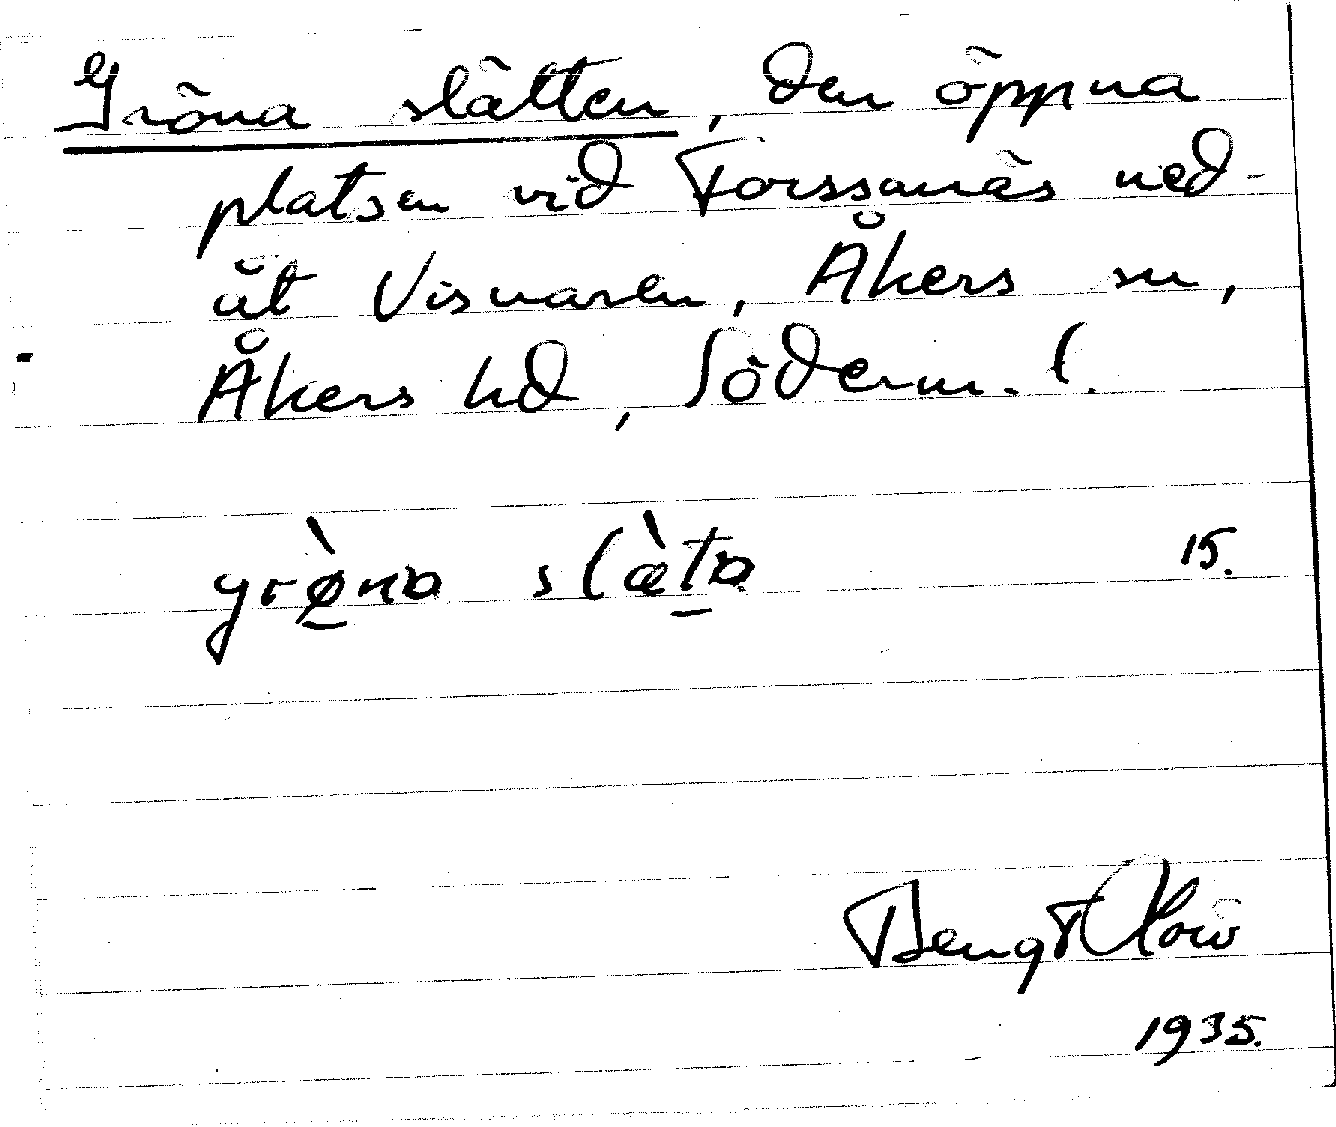 Gröna slätten, den öppna
platsen vid Forssanäs ned-
åt Visnaren, Åkers sn,
Åkers hd, Söderm. l.
grø̀na slæ̀ta 15.
Bengt
1935.